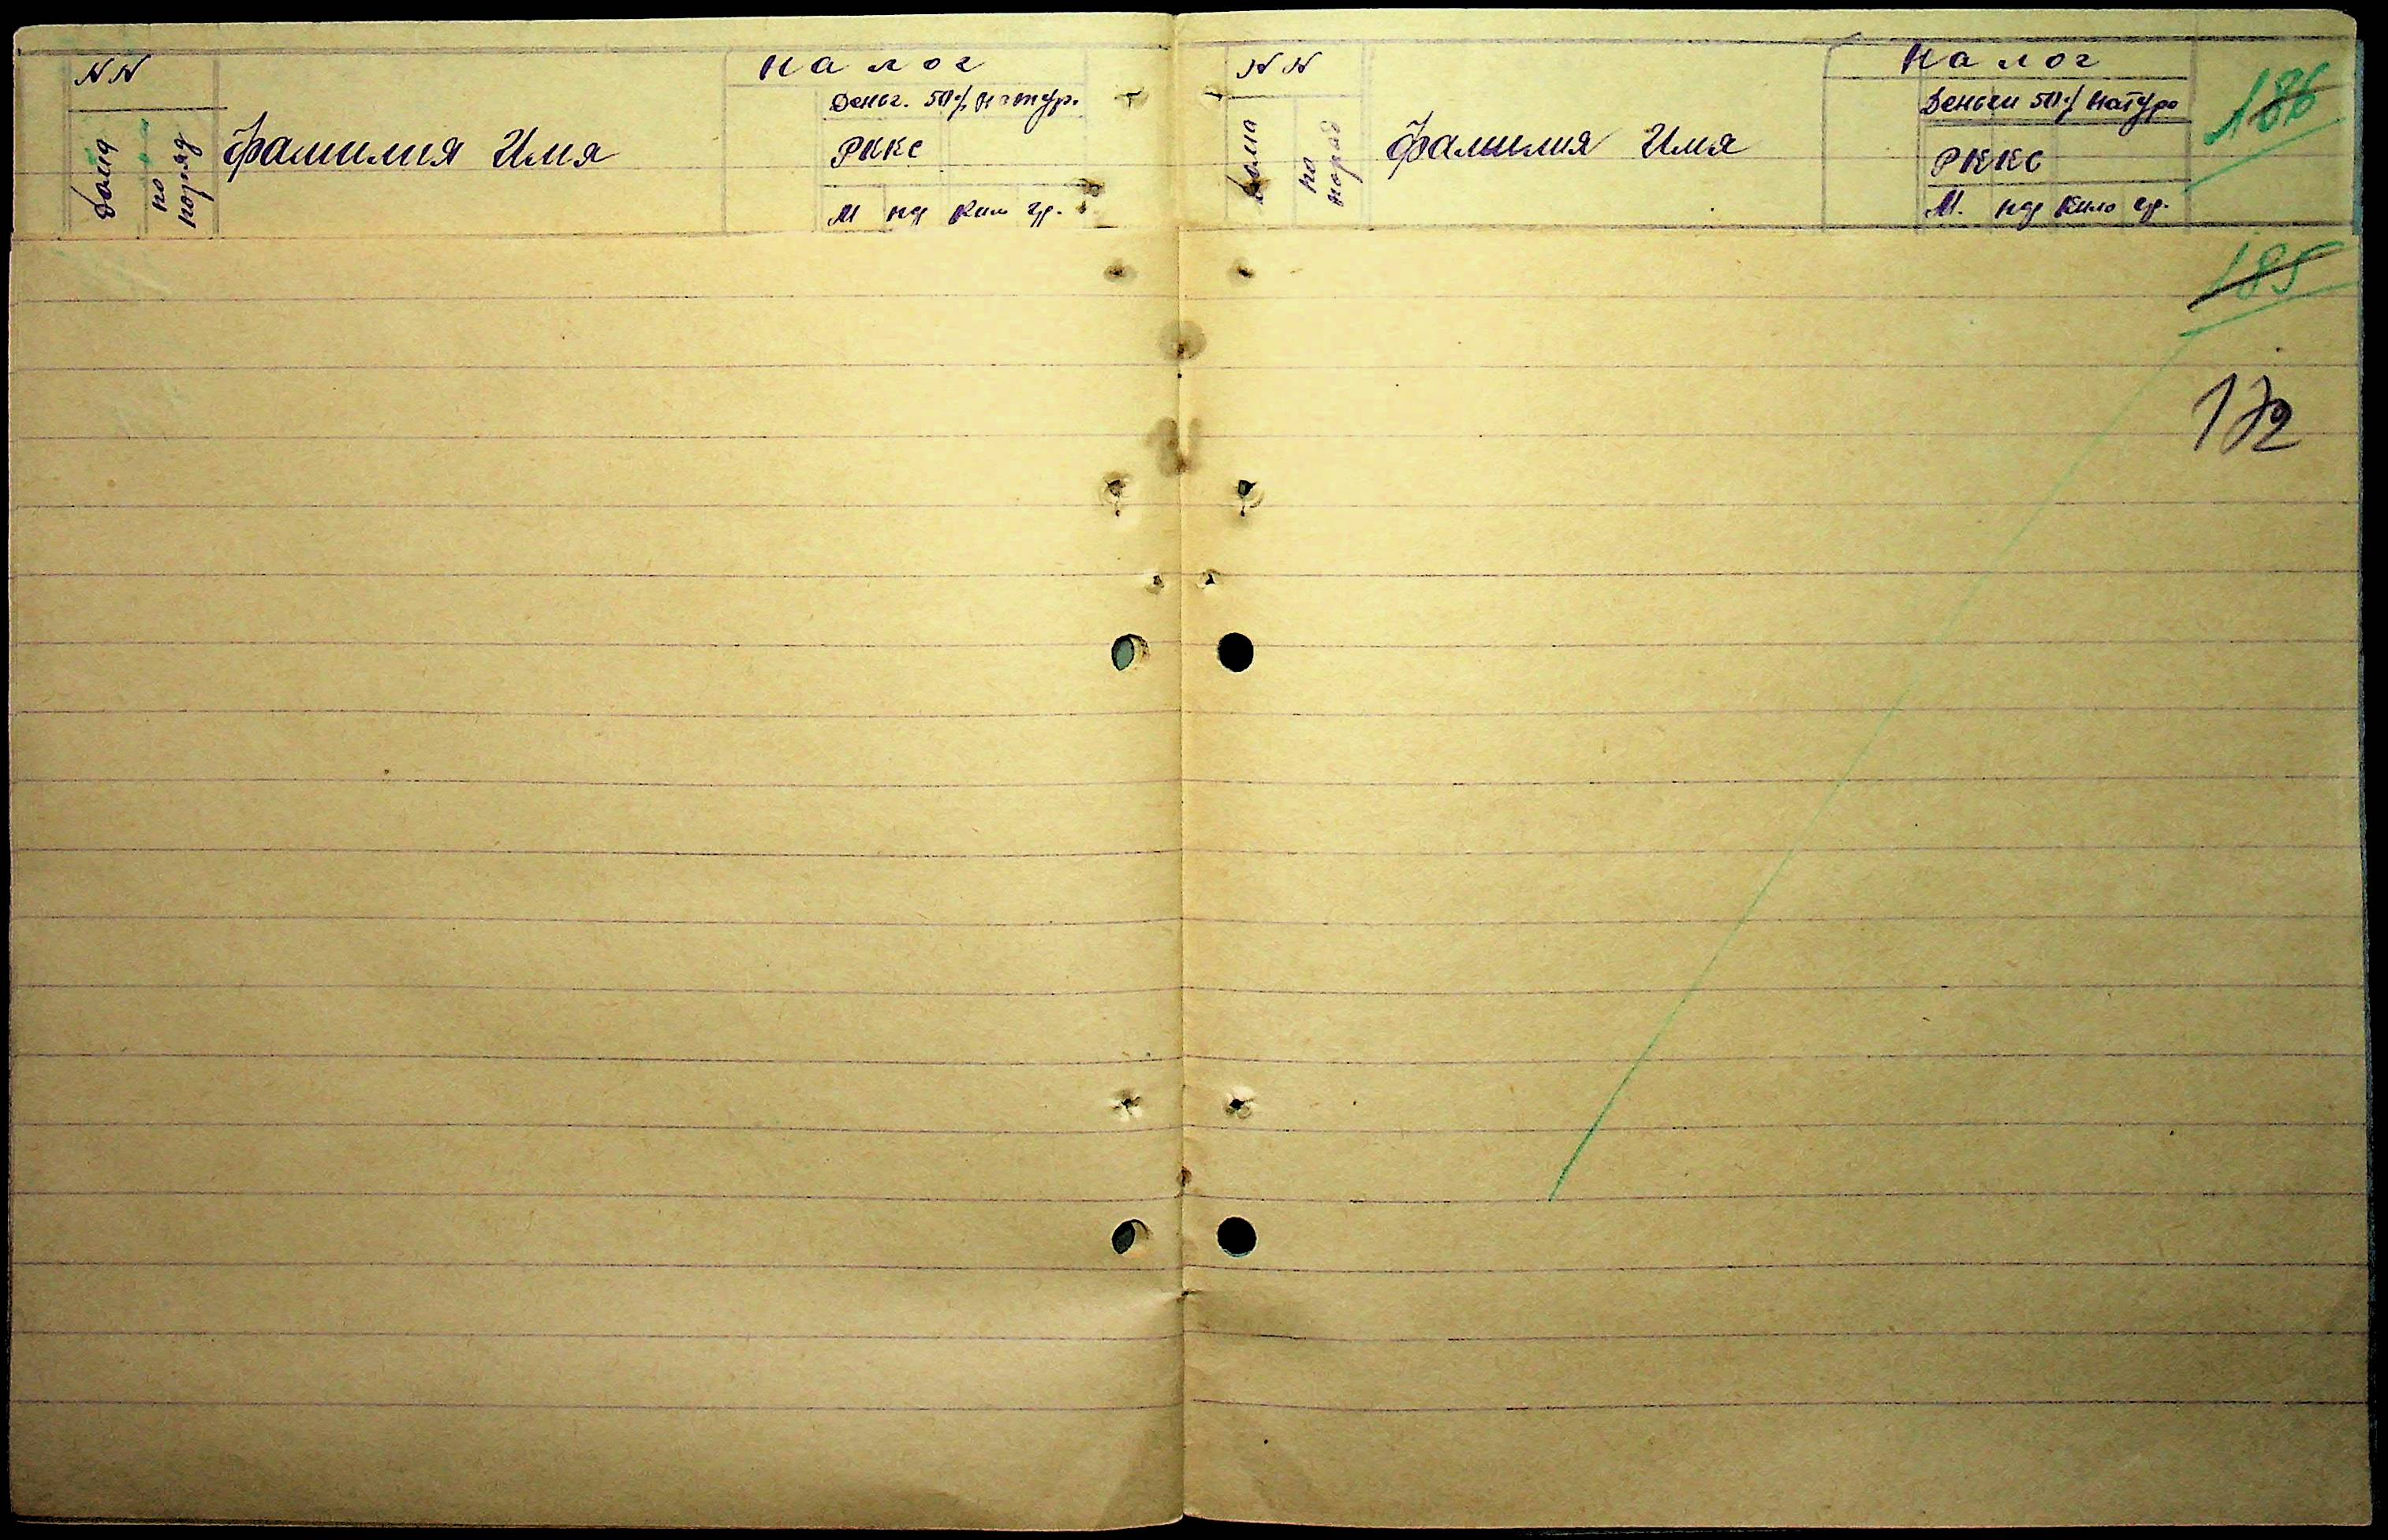 NN
Дома
по поряд
Фамилия Имя
Налог
Деньг. 50% натур.
РККС
М пд Кил гр.
NN
Дома
по поряд
Фамилия Имя
Налог
Деньги 50% натуро
РККС
М. пд Кило гр.
186
185
172